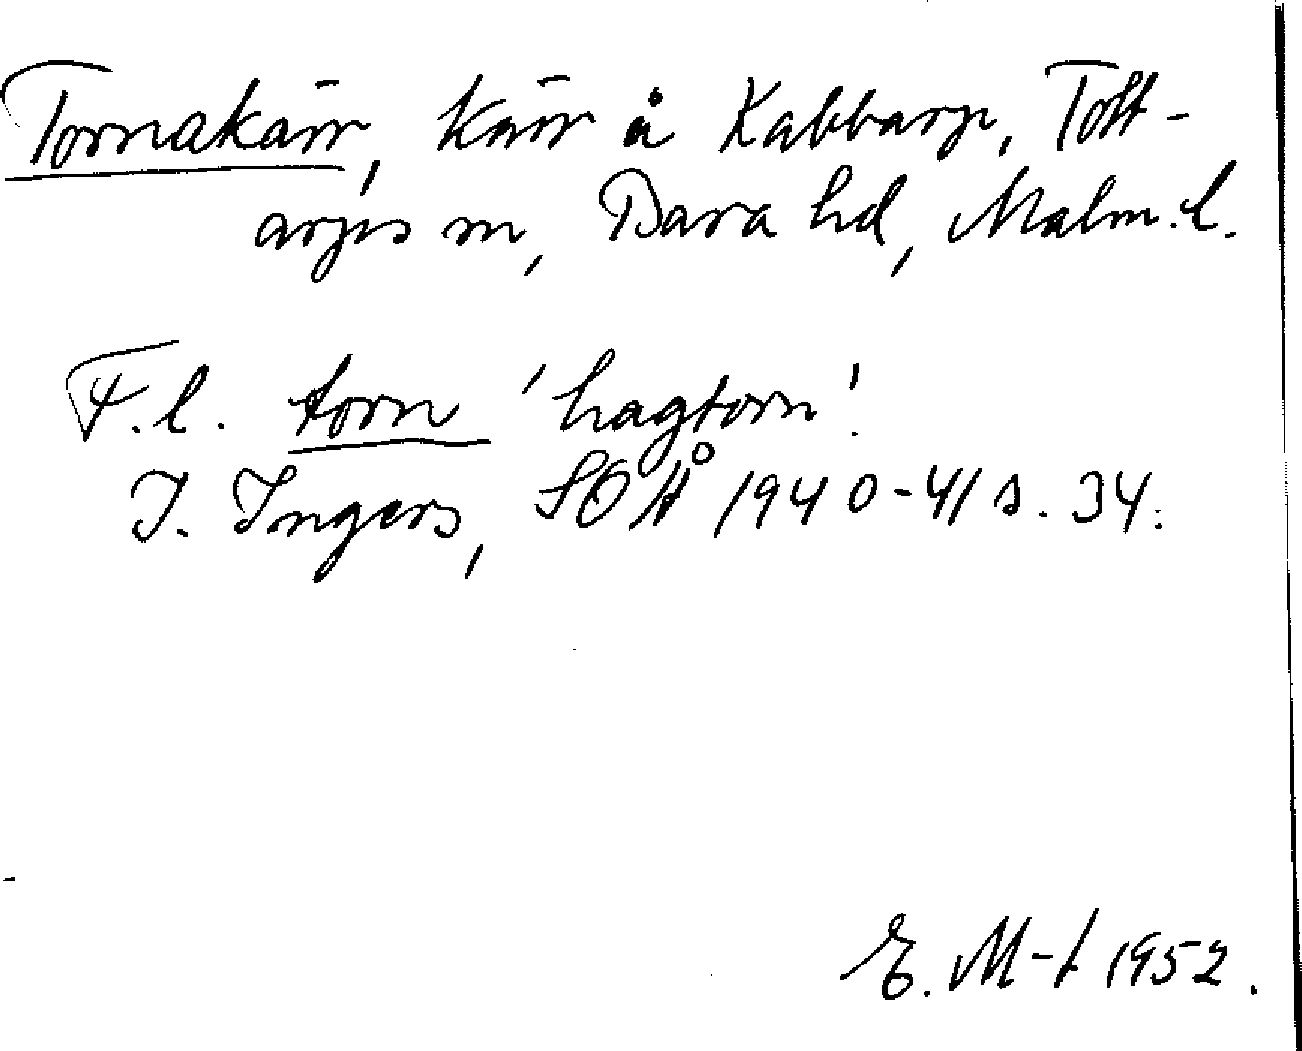 Tornakärr, kärr å Kabbarp, Tott-
arps sn, Bara hd, Malm. l.
F. l. torn 'hagtorn'.
I. Ingers, SOÅ 1940-41 s. 34.
E. M-t 1952.